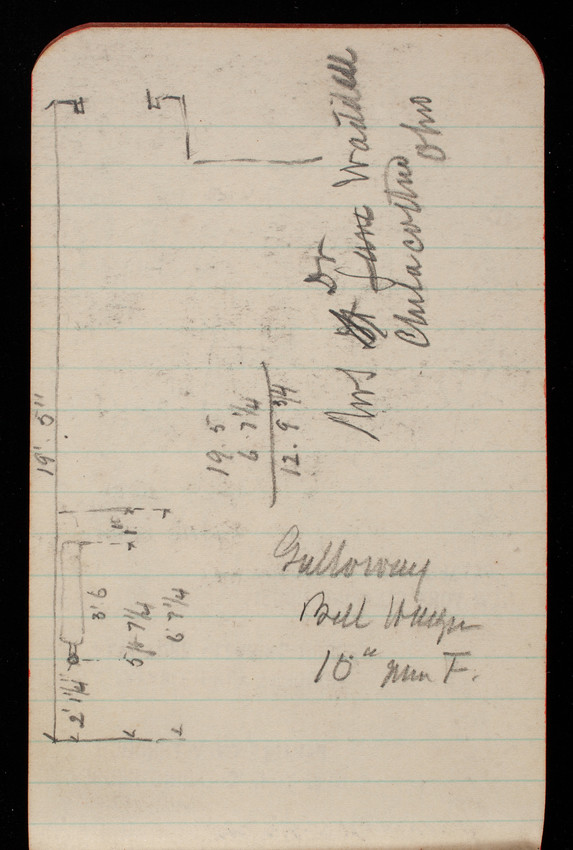 19' 5"
2' 1 1/4"
3' 6
1"
5 7 1/4
6' 7 1/4
19. 5
6. 7 1/4
12. 9 3/4
Mrs Dr Jane Waddell
Ohio
Galloway
Bell
10" F.